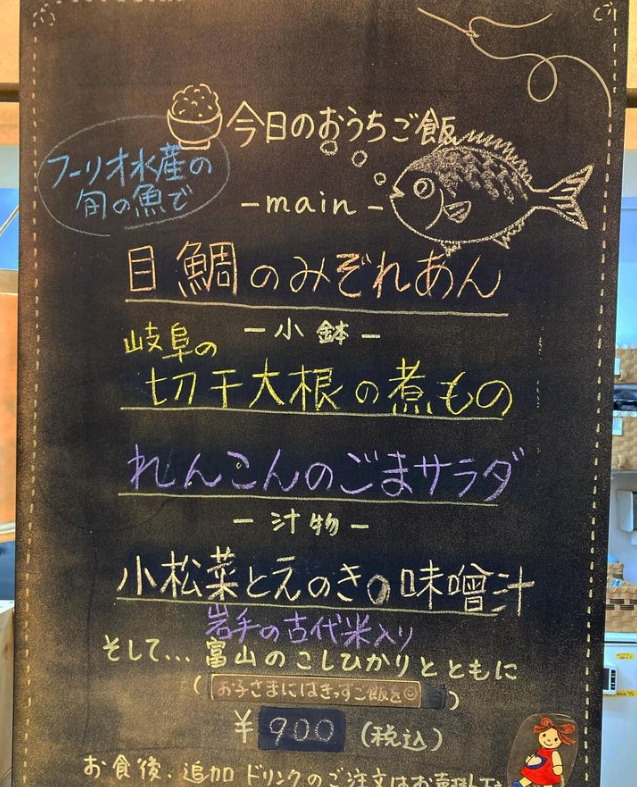 今日のおうちご飯
フーリオ水産の
旬の魚で
-main-
目鯛のみぞれあん
-小鉢-
岐阜の
切干大根の煮もの
れんこんのごまサラダ
-汁物-
小松菜とえのきの味噌汁
岩手の古代米入り
そして... 富山のこしひかりとともに
(お子さまにはきっずご飯を☺)
¥900 (税込)
お食後、追加ドリンクのご注文はお